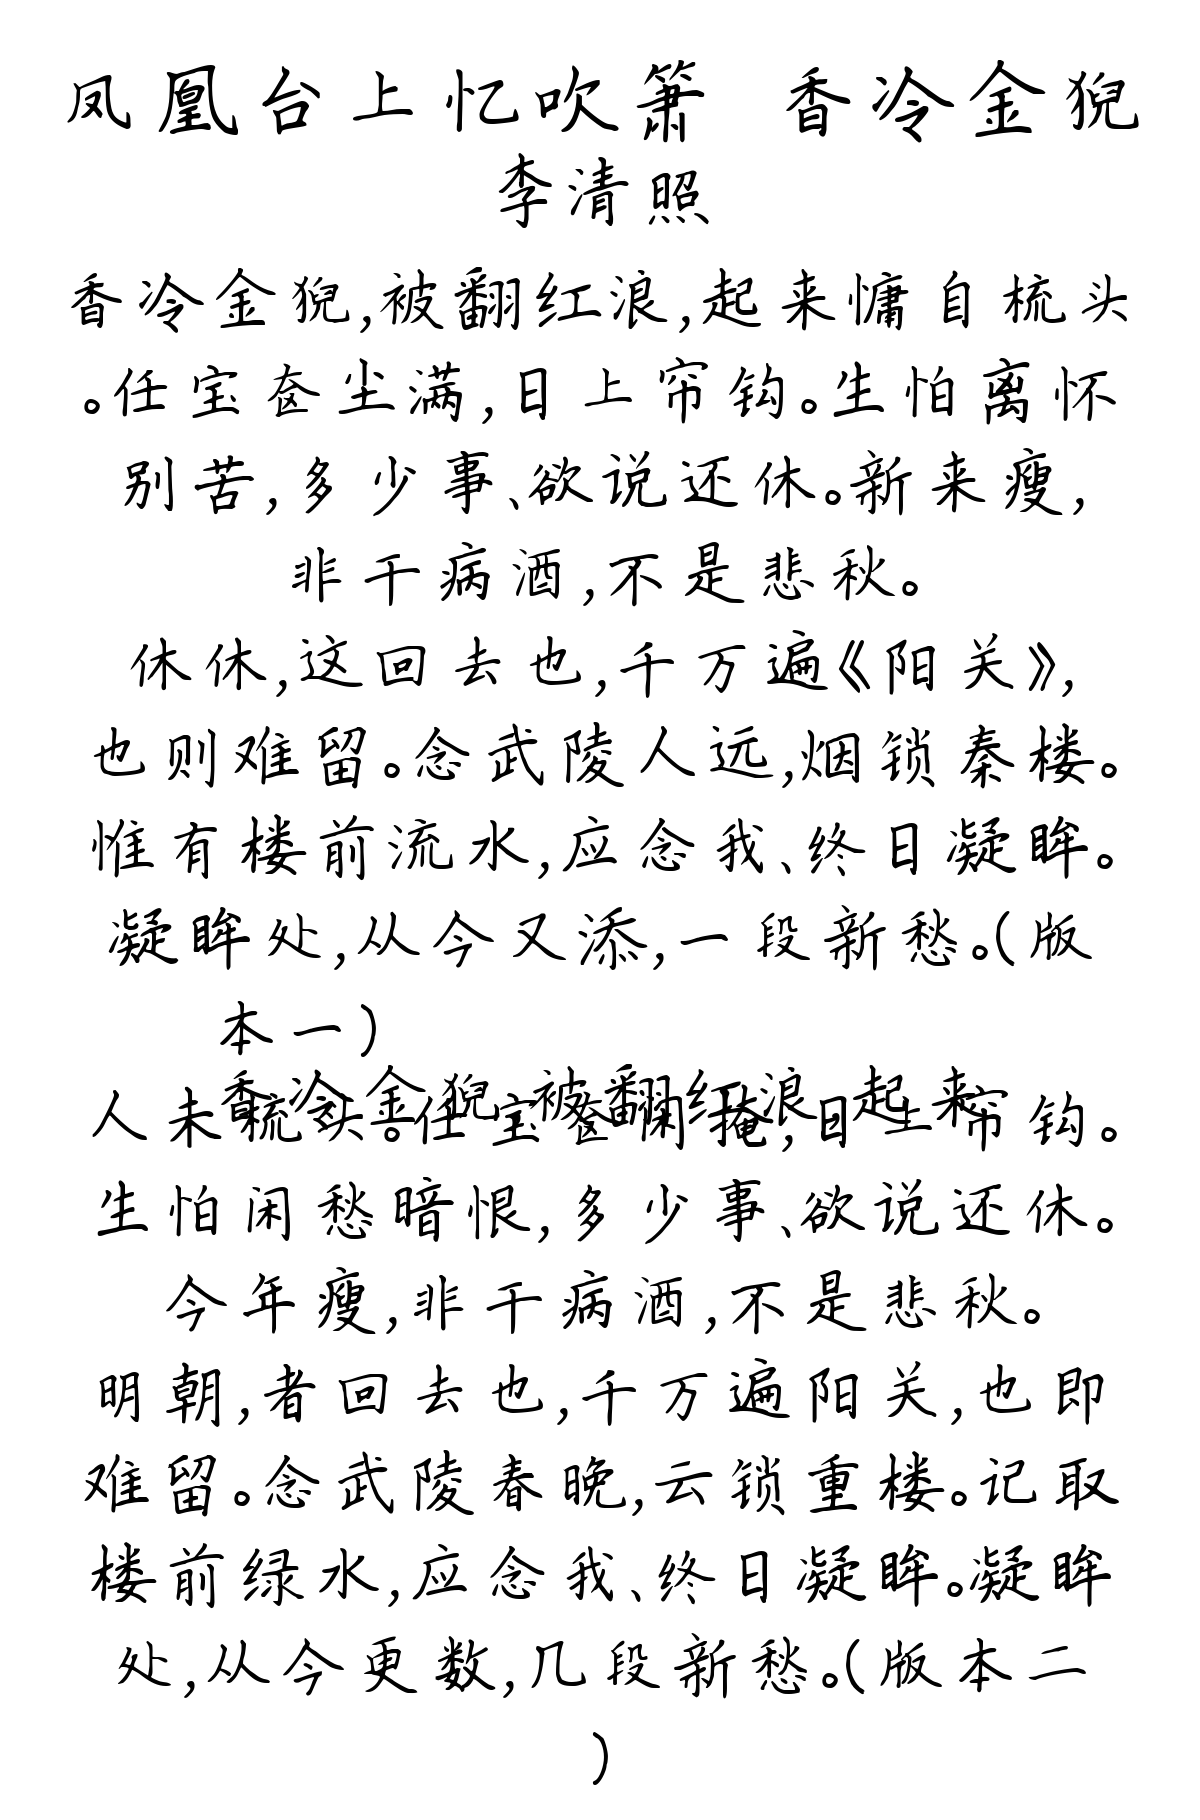 凤凰台上忆吹箫 香冷金猊
李清照
香冷金猊,被翻红浪,起来慵自梳头
。任宝奁尘满,日上帘钩。生怕离怀
别苦,多少事、欲说还休。新来瘦,
非干病酒,不是悲秋。
休休,这回去也,千万遍《阳关》,
也则难留。念武陵人远,烟锁秦楼。
惟有楼前流水,应念我、终日凝眸。
凝眸处,从今又添,一段新愁。(版
本一)
香冷金猊,被翻红浪,起来
人未梳头。任宝奁闲掩,日上帘钩。
生怕闲愁暗恨,多少事、欲说还休。
今年瘦,非干病酒,不是悲秋。
明朝,者回去也,千万遍阳关,也即
难留。念武陵春晚,云锁重楼。记取
楼前绿水,应念我、终日凝眸。凝眸
处,从今更数,几段新愁。(版本二
)